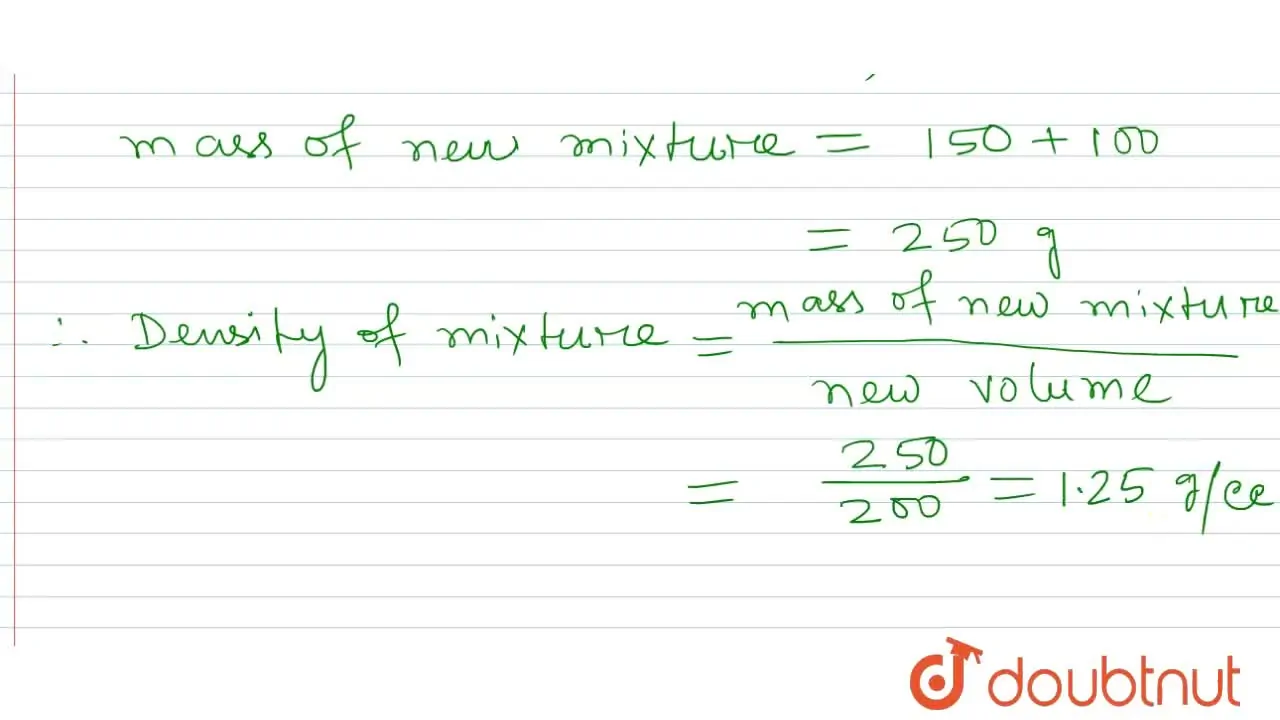 mass of new mixture = 150 + 100
= 250 g
∴ Density of mixture = mass of new mixture / new volume
= 250 / 200 = 1.25 g/cc
doubtnut